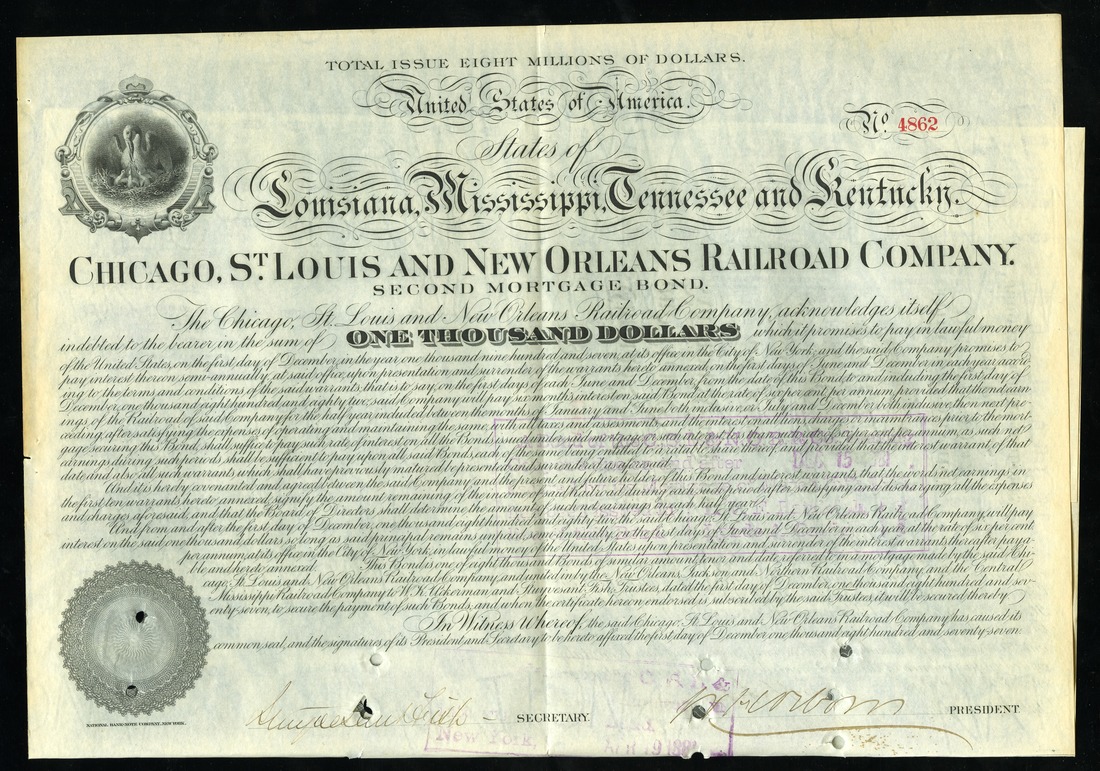 TOTAL ISSUE EIGHT MILLIONS OF DOLLARS.
United States of America.
No. 4862
States of
Louisiana, Mississippi, Tennessee and Kentucky.
CHICAGO, ST. LOUIS AND NEW ORLEANS RAILROAD COMPANY.
SECOND MORTGAGE BOND.
The Chicago, St. Louis and New Orleans Railroad Company, acknowledges itself
indebted to the bearer in the sum of ONE THOUSAND DOLLARS which it promises to pay in lawful money
of the United States, on the first day of December, in the year one thousand nine hundred and seven, at its office in the City of New York, and the said Company promises to
pay interest thereon, semi-annually, at said office, upon presentation and surrender of the warrants hereto annexed, on the first days of June and December in each year, accord-
ing to the terms and conditions of the said warrants, that is to say, on the first days of each June and December, from the date of this Bond, to and including the first day of
December, one thousand eight hundred and eighty two, said Company will pay six months interest on said Bond at the rate of six per cent per annum, provided that the net earn-
ings of the Railroad of said Company for the half year included between the months of January and June both inclusive, or July and December both inclusive, then next pre-
ceding, after satisfying the expenses of operating and maintaining the same, with all taxes and assessments and the interest on
gage securing this Bond, shall suffice to pay such rate of interest on all the Bonds issued under said mortgage
earnings during such periods shall be sufficient to pay upon all said Bonds, each of the same being entitled to a ratable share
date and also all such warrants which shall have previously matured be presented and surrendered as aforesaid.
And it is hereby covenanted and agreed between the said Company and the present and future holder of this Bond and interest warrants, that the words net earnings in
the first ten warrants hereto annexed, signify the amount remaining of the income of said Railroad during each such period after satisfying and discharging all the expenses
and charges aforesaid, and that the Board of Directors shall determine the amount of such net earnings, each half year.
And from and after the first day of December, one thousand eight hundred and eighty two, the said Chicago, St. Louis and New Orleans Railroad Company, will pay
interest on the said one thousand dollars so long as said principal remains unpaid, semi-annually, on the first days of June and December in each year at the rate of six per cent
per annum, at its office in the City of New York, in lawful money of the United States upon presentation and surrender of the interest warrants thereafter paya-
ble and hereto annexed. This Bond is one of eight thousand Bonds of similar amount, tenor and date, referred to in a mortgage made by the said Chi-
cago, St. Louis and New Orleans Railroad Company, and united in by the New Orleans, Jackson and Northern Railroad Company, and the Central
Mississippi Railroad Company to W. K. Ackerman and Stuyvesant Fish, Trustees, dated the first day of December, one thousand eight hundred and sev-
enty seven, to secure the payment of such Bonds, and when the certificate hereon endorsed is subscribed by the said Trustees, it will be secured thereby
In Witness Whereof, the said Chicago, St. Louis and New Orleans Railroad Company has caused its
common seal, and the signatures of its President and Secretary to be hereto affixed the first day of December one thousand eight hundred and seventy-seven
SECRETARY.
PRESIDENT.
NATIONAL BANK-NOTE COMPANY, NEW YORK.
New York